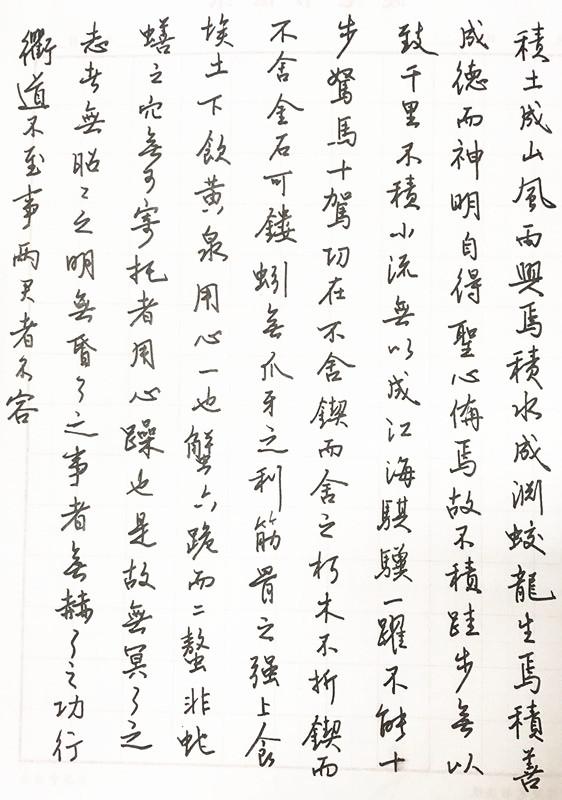 積土成山風雨興焉積水成淵蛟龍生焉積善
成德而神明自得聖心備焉故不積跬步無以
致千里不積小流無以成江海騏驥一躍不能十
步駑馬十駕功在不舍鍥而舍之朽木不折鍥而
不舍金石可鏤蚓無爪牙之利筋骨之强上食
埃土下飲黃泉用心一也蟹六跪而二螯非虵
蟮之穴無可寄托者用心躁也是故無冥々之
志者無昭々之明無惛々之事者無赫々之功行
衢道不至事兩君者不容